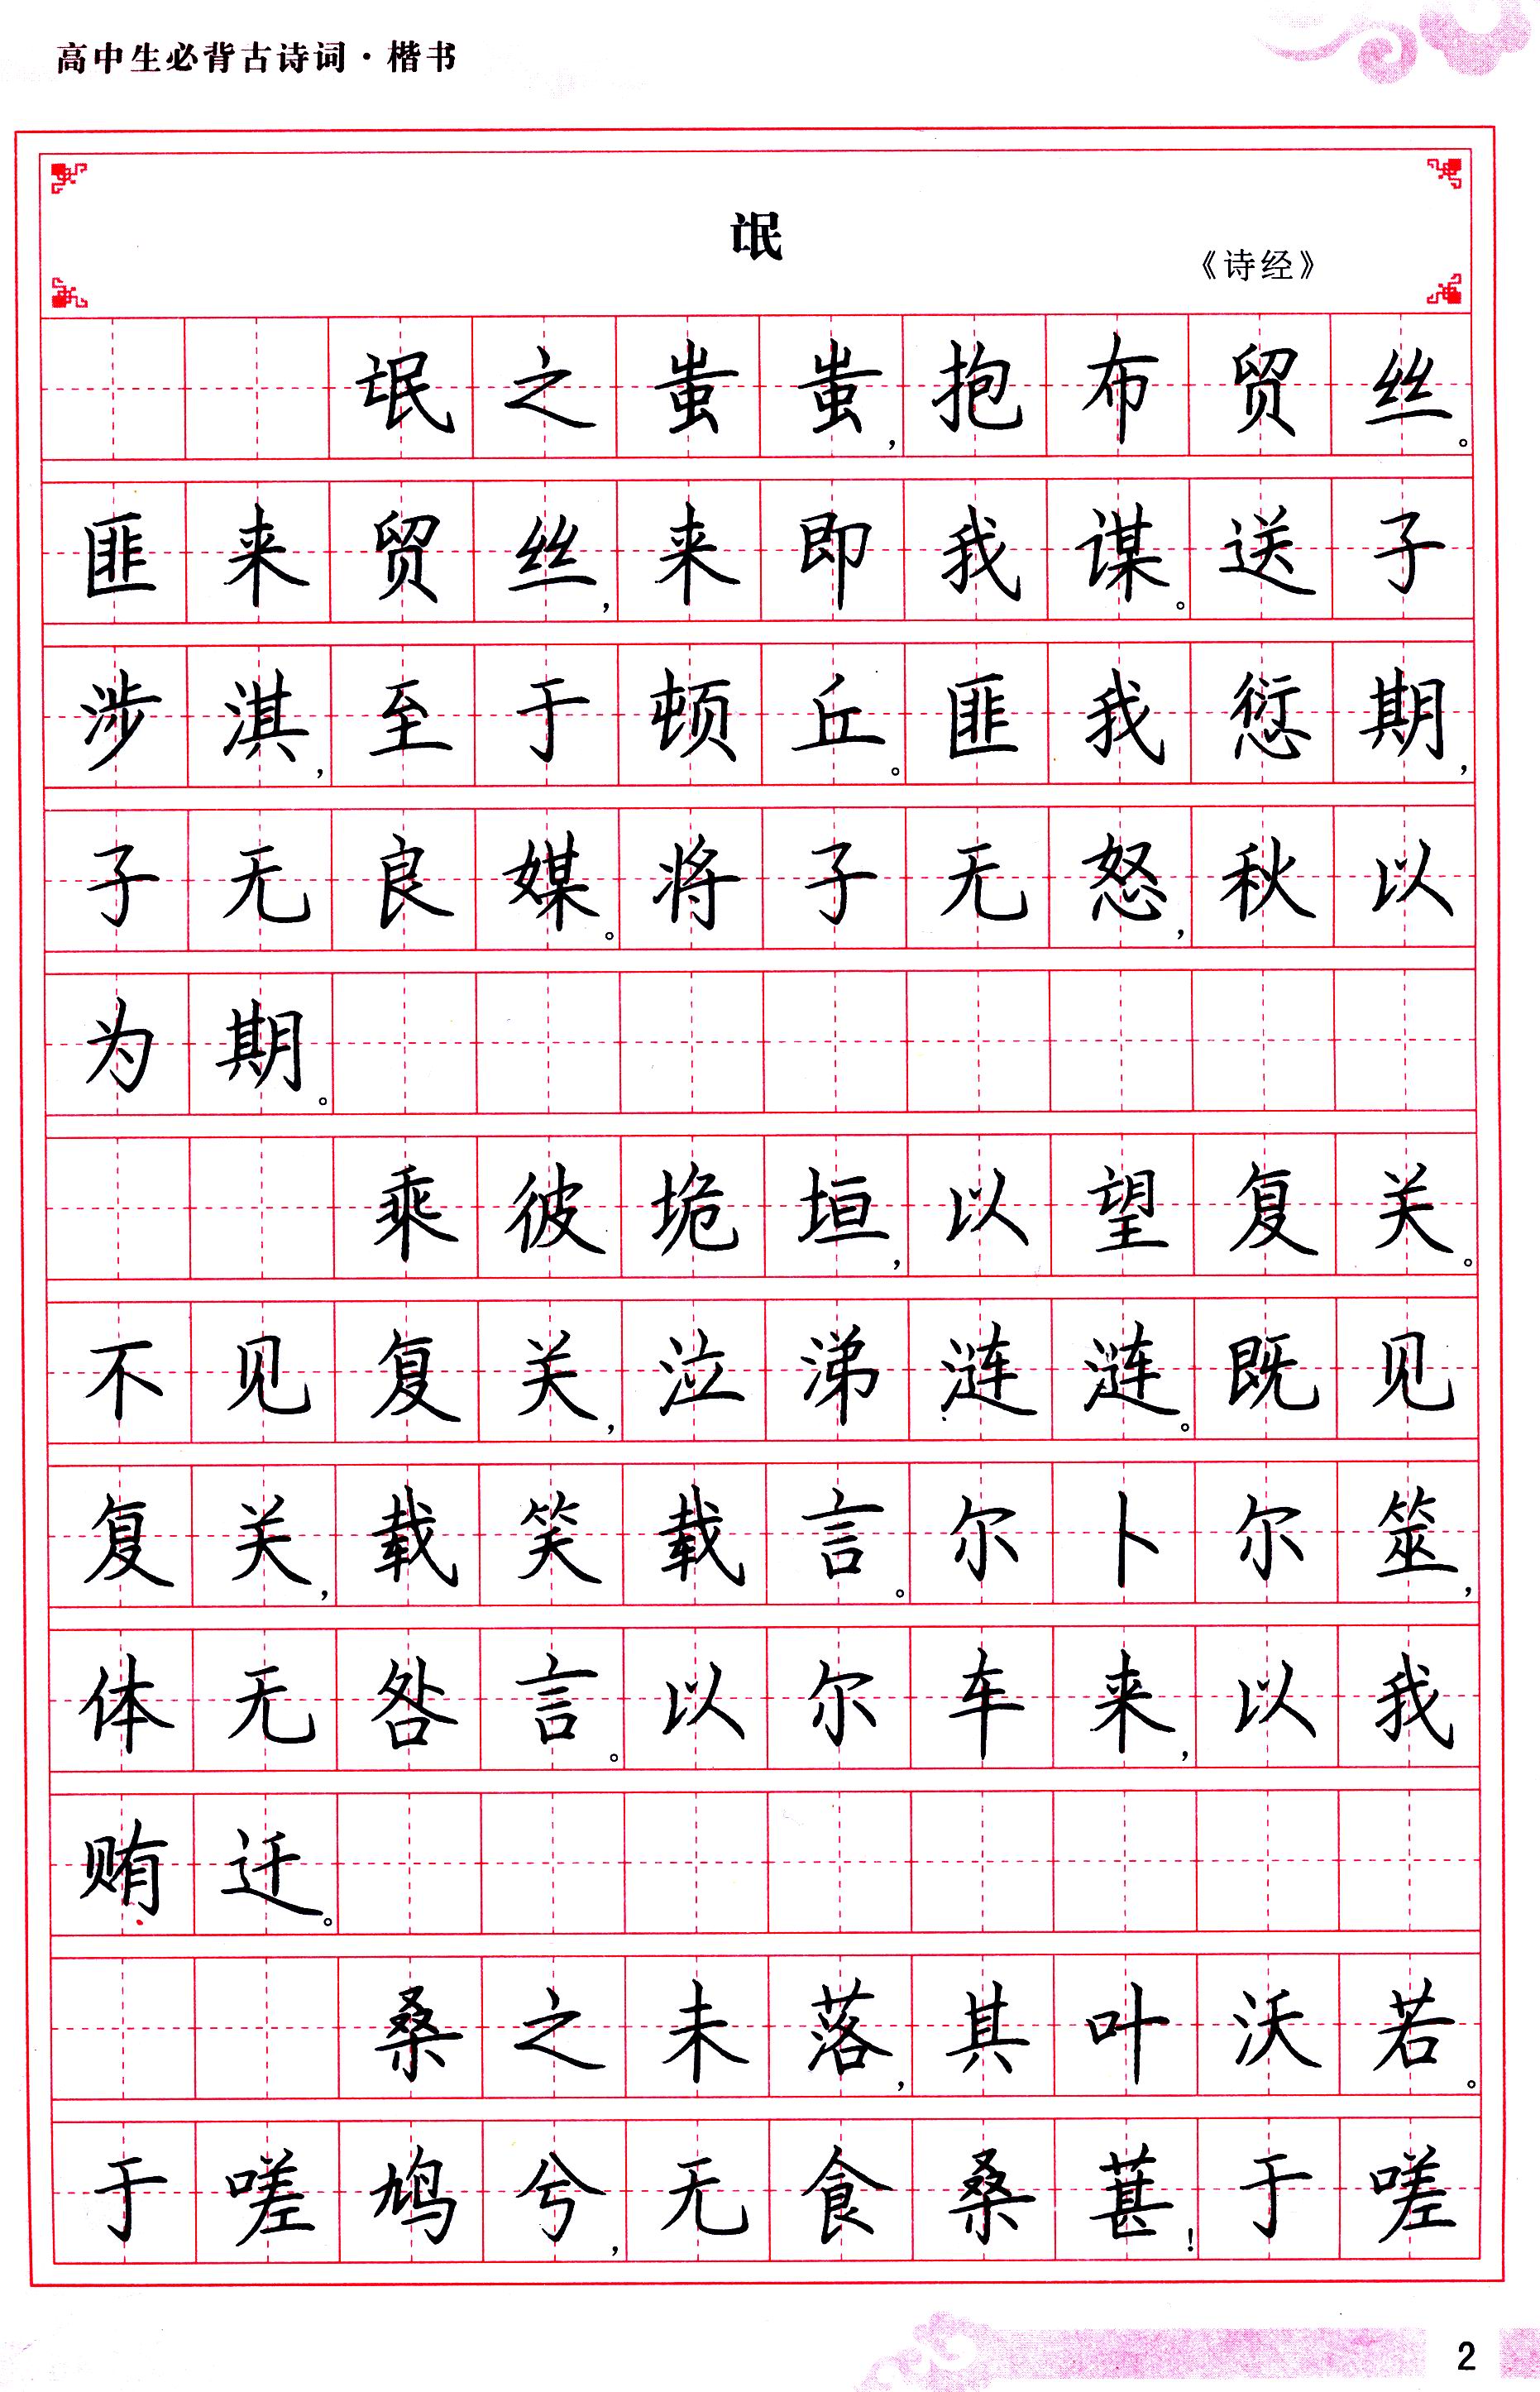 高中生必背古诗词·楷书
氓
《诗经》
氓之蚩蚩，抱布贸丝。
匪来贸丝，来即我谋。送子
涉淇，至于顿丘。匪我愆期，
子无良媒。将子无怒，秋以
为期。
乘彼垝垣，以望复关。
不见复关，泣涕涟涟。既见
复关，载笑载言。尔卜尔筮，
体无咎言。以尔车来，以我
贿迁。
桑之未落，其叶沃若。
于嗟鸠兮，无食桑葚！于嗟
2